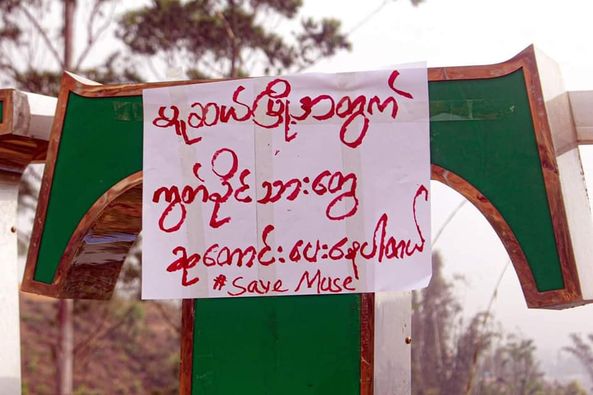 မူဆယ်မြို့အတွက်
ကွတ်ခိုင်သားတွေ
ဆုတောင်းပေးနေပါတယ်
#Save Muse